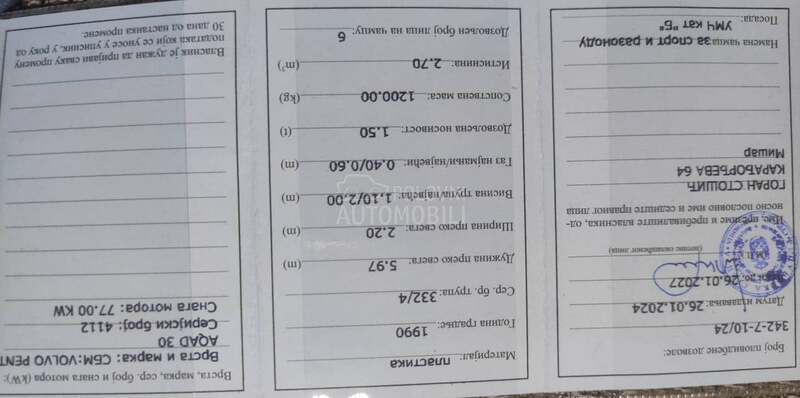 Број пловидбене дозволе:
342-7-10/24
Датум издавања: 26.01.2024
26.01.2027
(М.П.)
(потпис овлашћеног лица)
Име, презиме и пребивалиште власника, од-
носно пословно име и седиште правног лица
ГОРАН СТОШИЋ
КАРАЂОРЂЕВА 64
Мишар
Намена чамца: за спорт и разоноду
УМЧ кат "Б"
Посада:
Материјал: пластика
Година градње: 1990
Сер. бр. трупа: 332/4
Дужина преко свега: 5.97 (m)
Ширина преко свега: 2.20 (m)
Висина трупа/највећа: 1.10/2.00 (m)
Газ најмањи/највећи: 0.40/0.60 (m)
Дозвољена носивост: 1.50 (t)
Сопствена маса: 1200.00 (kg)
Истиснина: 2.70 (m³)
Дозвољен број лица на чамцу:
6
Врста, марка, сер. број и снага мотора (kW):
Врста и марка: СБМ:VOLVO PENT
AQAD 30
Серијски број: 4112
Снага мотора: 77.00 KW
Власник је дужан да пријави сваку промену
података који се уносе у уписник, у року од
30 дана од настанка промене.
POLOVNI
AUTOMOBILI